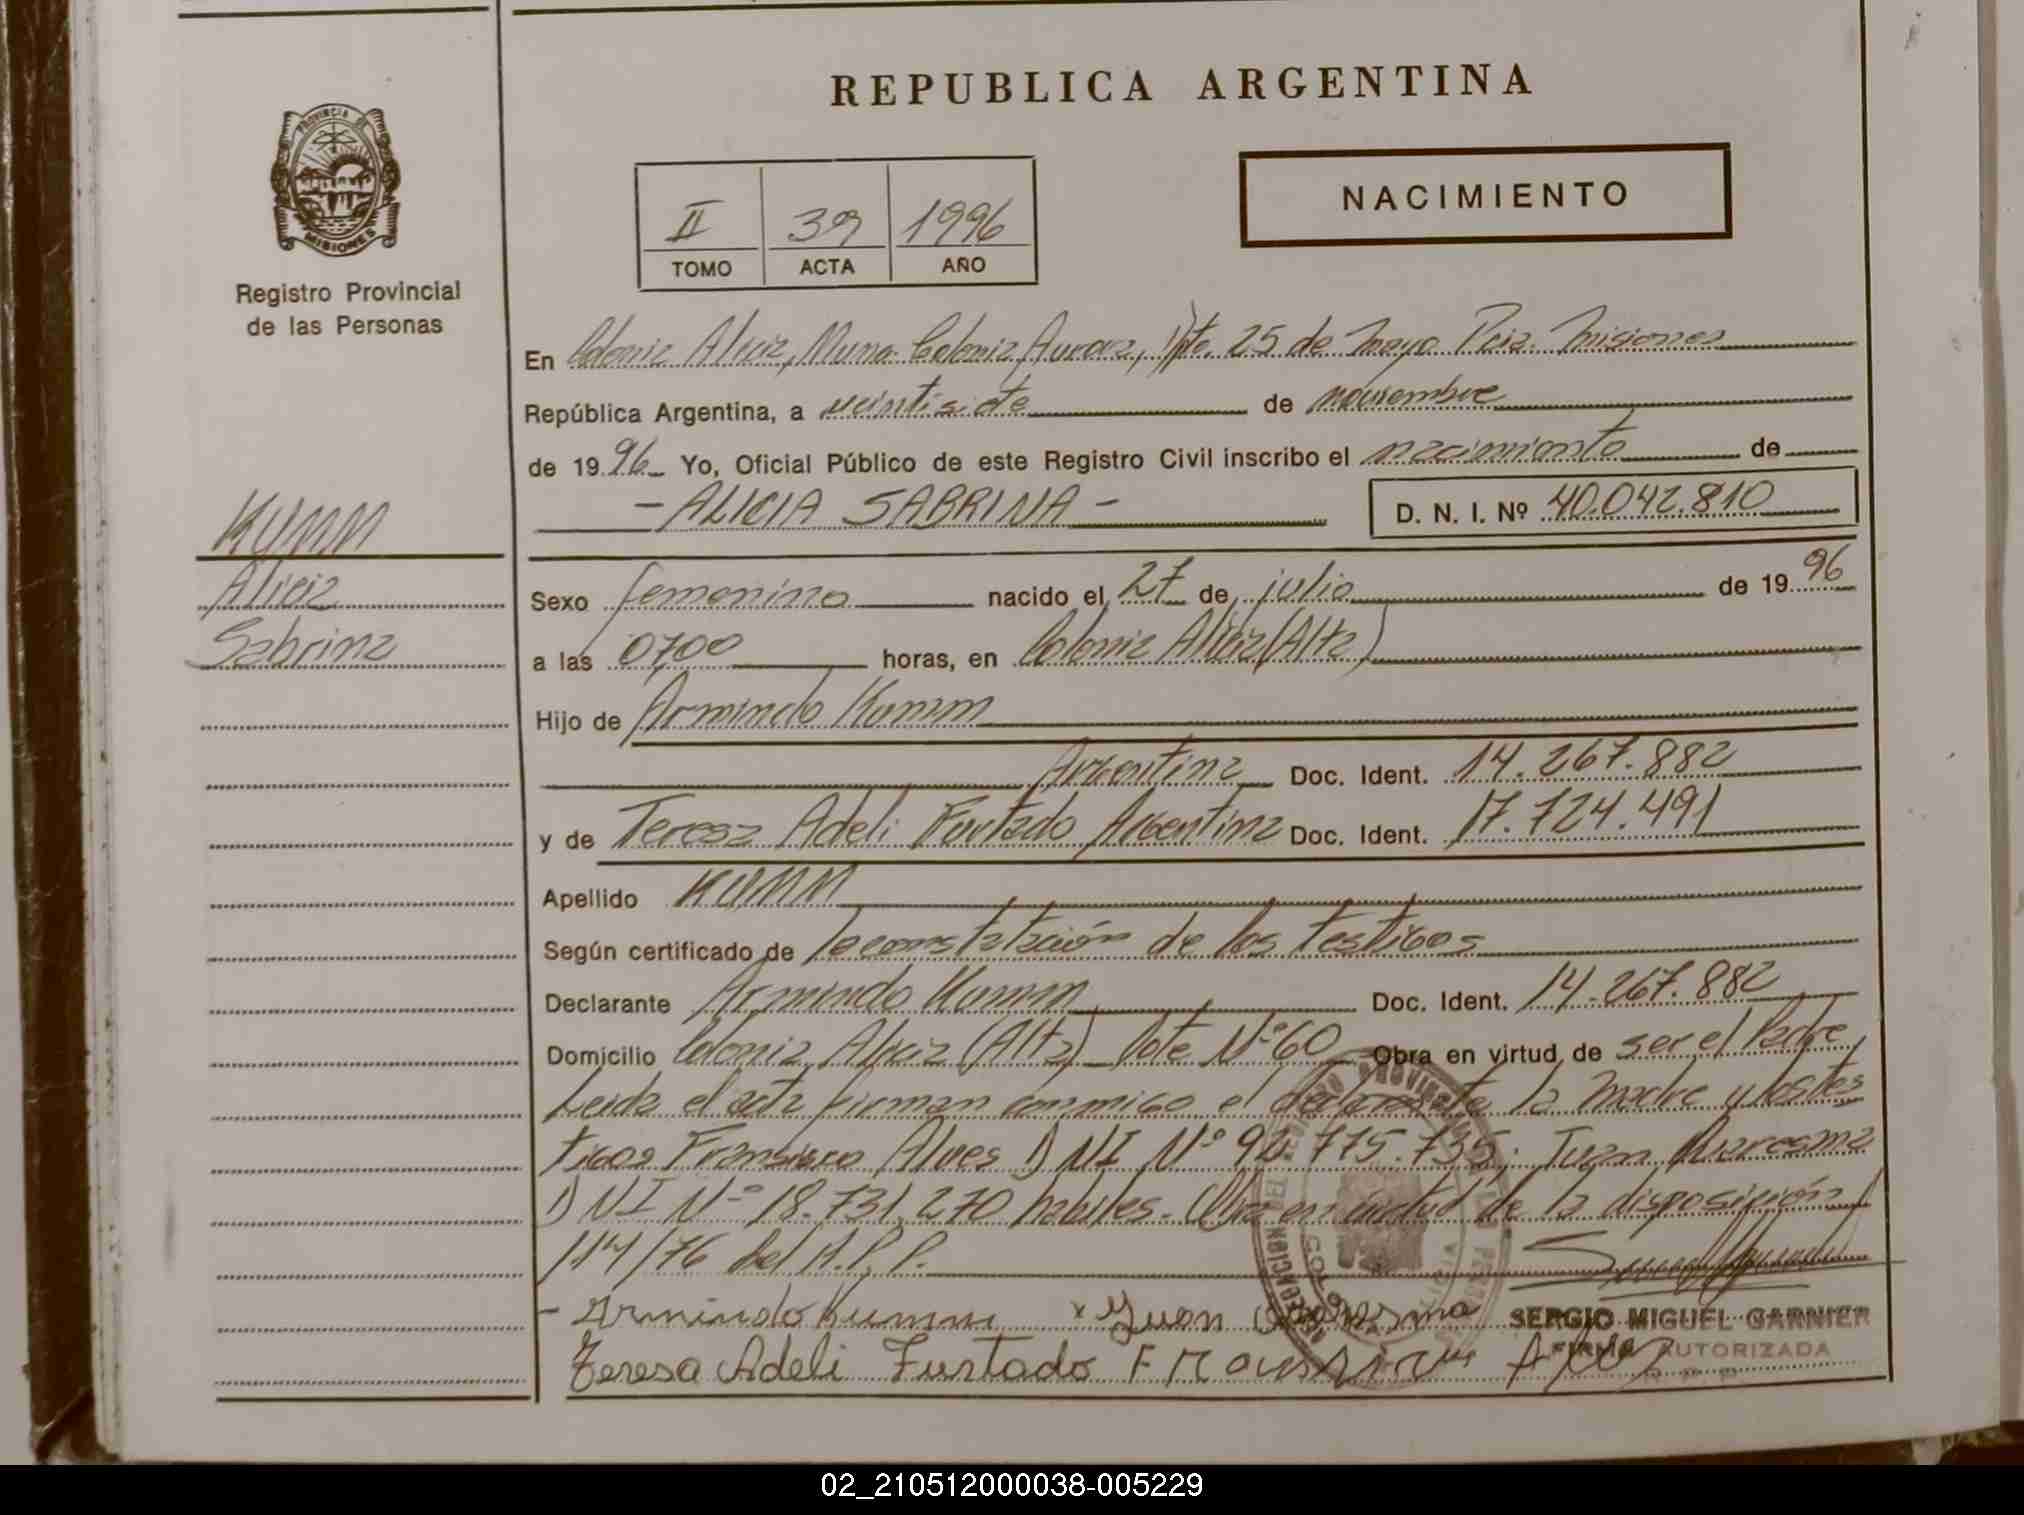 REPUBLICA ARGENTINA
PROVINCIA DE
MISIONES
Registro Provincial
de las Personas
NACIMIENTO
II 39 1996
TOMO ACTA AÑO
En Colonia Alicia, Muna. Colonia Aurora, Dpto. 25 de Mayo Pcia. Misiones
República Argentina, a veintisiete de noviembre
de 1996 Yo, Oficial Público de este Registro Civil inscribo el nacimiento de
- ALICIA SABRINA - D. N. I. Nº 40.042.810
KUMM
Alicia
Sabrina
Sexo femenino nacido el 27 de julio de 1996
a las 0700 horas, en Colonia Alicia (Alta)
Hijo de Armindo Kumm
Argentina Doc. Ident. 14.267.882
y de Teresa Adeli Furtado Argentina Doc. Ident. 17.724.491
Apellido KUMM
Según certificado de la constatación de los testigos
Declarante Armindo Kumm Doc. Ident. 14.267.882
Domicilio Colonia Alicia (Alta) Lote Nº 60 Obra en virtud de ser el Padre
Leida el acta firman conmigo el declarante la Madre y los tes
tigos Fransisco Alves DNI Nº 92.775.735; Juan Quaresma
DNI Nº 18.731.270 habiles. Obra en virtud de la disposición
114/76 del R.P.P.
- Armindo Kumm x Juan Quaresma SERGIO MIGUEL GARNIER
FIRMA AUTORIZADA
Teresa Adeli Furtado Alves
02_210512000038-005229